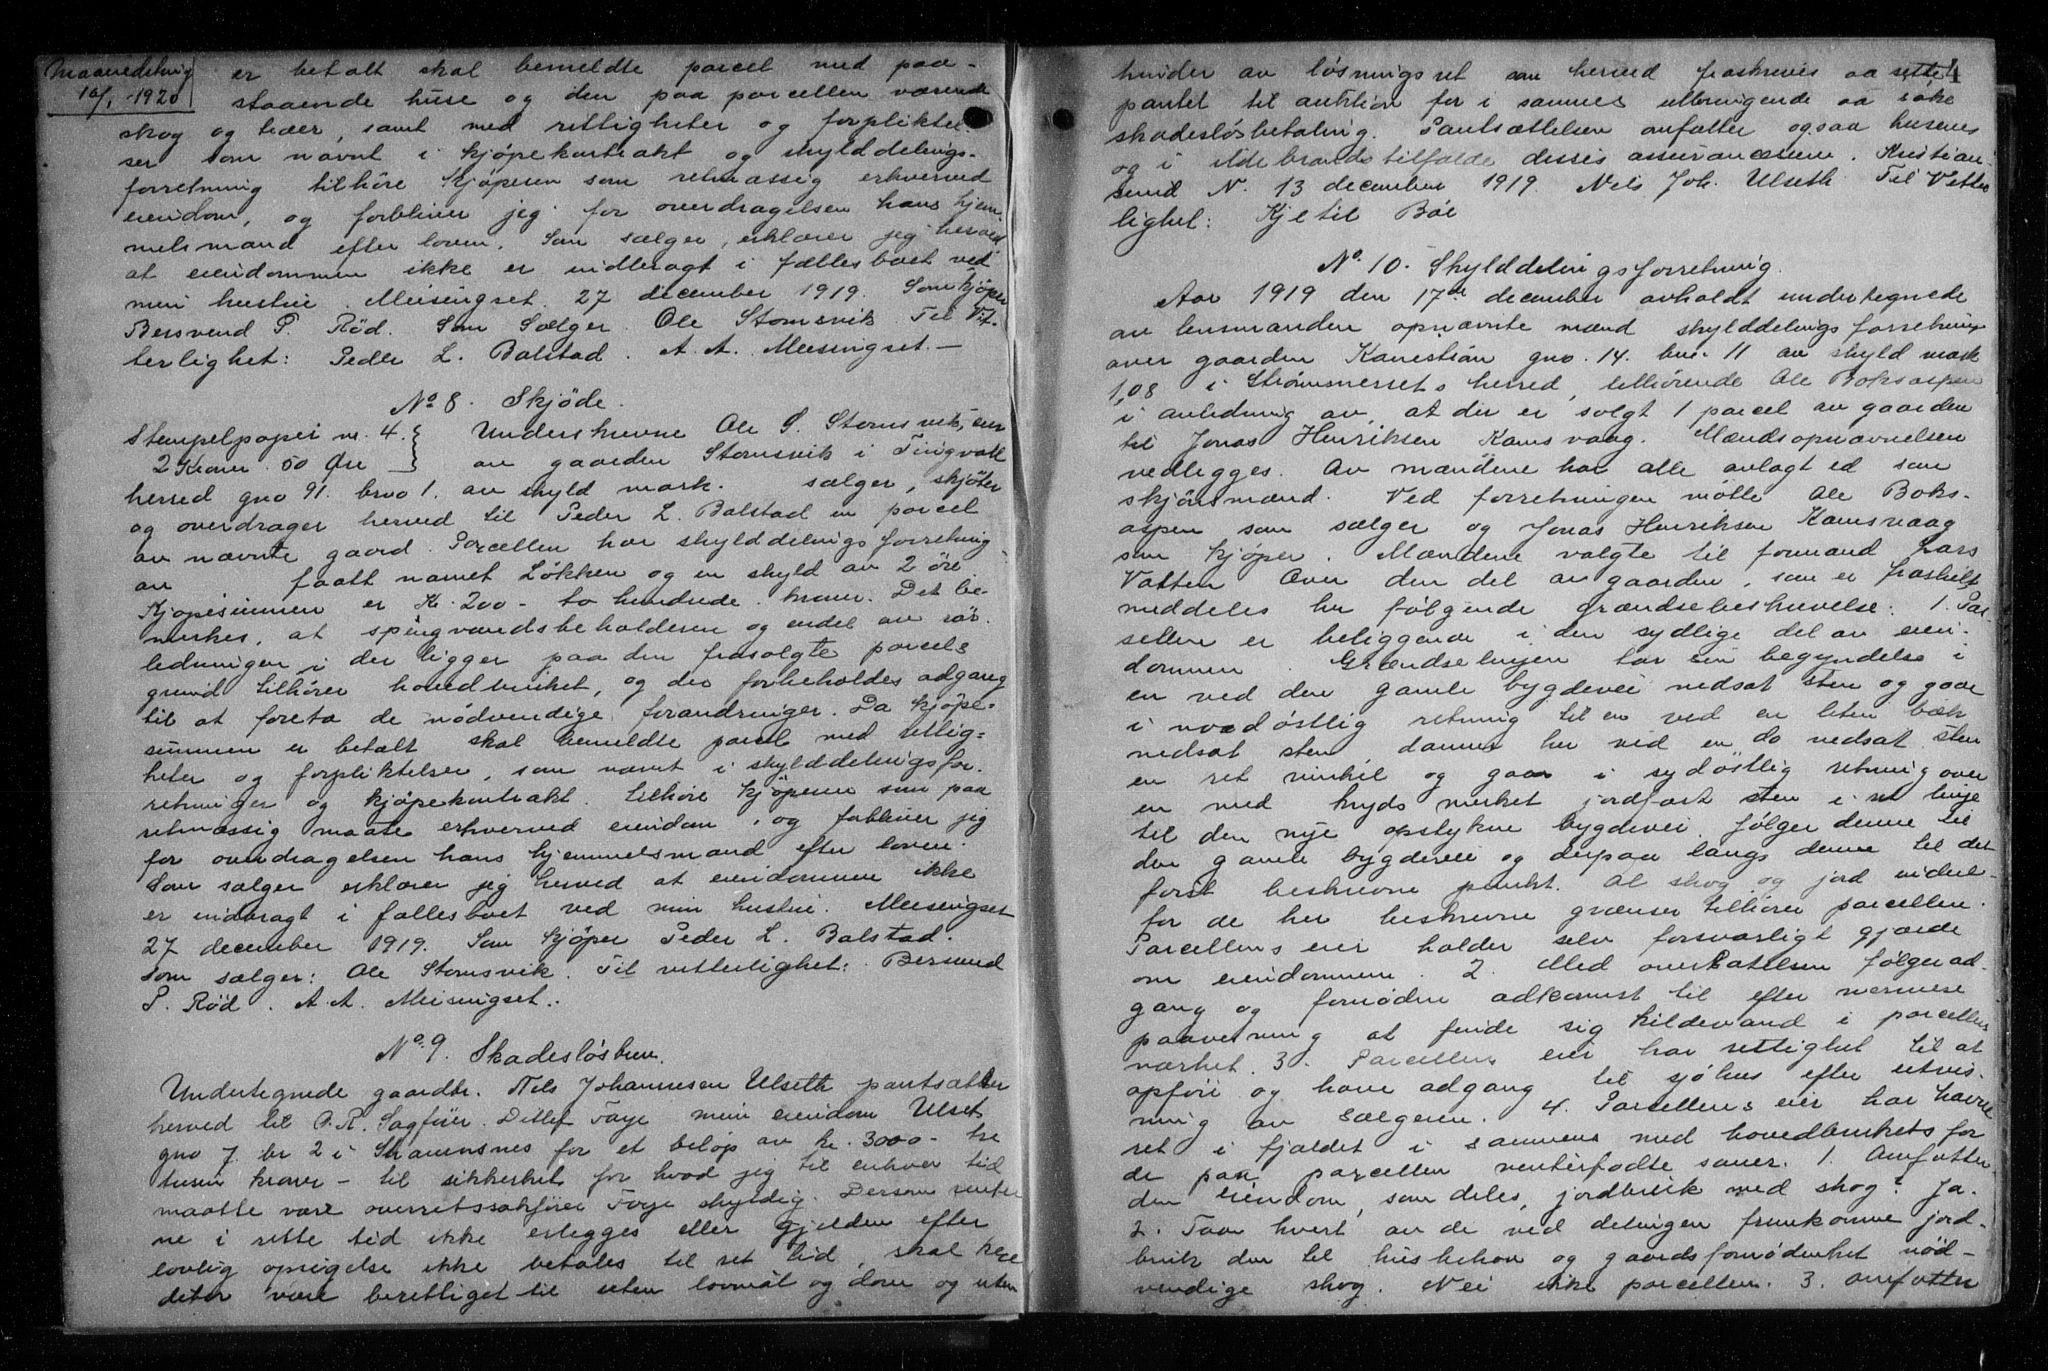 Maanedsting
10/1 - 1920
er betalt skal bemeldte parcel med paa-
staaende huse og den paa parcellen værende
skog og træer, samt med rettigheter og forpliktel-
ser som nævnt i kjøpekontrakt og skylddelings-
forretning tilhøre kjøperen som retmæssig erhvervet
eiendom, og forbliver jeg for overdragelsen hans hjem-
melsmand efter loven. Som sælger, erklærer jeg herved
at eiendommen ikke er indbragt i fællesboet ved
min hustru. Meisingset 27 december 1919. Som kjøper
Bersvend P. Rød. Som Sælger Ole Stomsvik Til Vit-
terlighet: Peder L. Balstad. A. A. Meisingset. —
No 8. Skjøde.
Stempelpapir nr. 4.
2 Kroner 50 Øre
Underskrevne Ole S. Stomsvik, eier
av gaarden Stomsvik i Tingvoll
herred gno 91. brno 1. av skyld mark. sælger, skjøter
og overdrager herved til Peder L. Balstad en parcel
av nævnte gaard. Parcellen har skylddelingsforretning
av faatt navnet Løkken og en skyld av 2 øre
Kjøpesummen er Kr. 200 - to hundrede kroner. Det be-
merkes, at springvandsbeholderen og endel av rør-
ledningen, der ligger paa den frasolgte parcels
grund tilhører hovedbruket, og der forbeholdes adgang
til at foreta de nødvendige forandringer. Da kjøpe-
summen er betalt skal bemeldte parcel med rettig-
heter og forpliktelser, som nævnt i skylddelingsfor-
retninger og kjøpekontrakt tilhøre kjøperen som paa
retmæssig maate erhverved eiendom, og forbliver jeg
for overdragelsen hans hjemmelsmand efter loven.
Som sælger erklærer jeg herved at eiendommen ikke
er indbragt i fællesboet ved min hustru. Meisingset
27 december 1919. Som kjøper Peder L. Balstad.
Som sælger: Ole Stomsvik. Til vitterlighet: Bersvend
P. Rød. A. A. Meisingset.
No 9. Skadesløsbrev.
Undertegnede gaardbr. Nils Johannesen Ulseth pantsætter
herved til O. R. Sagfører Ditlef Faye min eiendom Ulset
gno 7 br 2 i Strømsnes for et beløp av kr. 3000 - tre
tusen kroner - til sikkerhet for hvad jeg til enhver tid
maatte være overretssakfører Faye skyldig. Dersom renter
ne i rette tid ikke erlægges eller gjelden efter
lovlig opsigelse ikke betales til ret tid, skal kre
ditor være berettiget til uten lovmål og dom og uten
4
hinder av løsningsret som herved fraskrives aa sætte
pantet til auktion for i sammes utbringende aa søke
skadesløsbetaling. Pantsættelsen omfatter ogsaa husene
og i ildebrandstilfælde disses assurancesum. Kristian-
sund N. 13 december 1919 Nels Joh. Ulseth. Til Vitter
lighet: Kjetil Bøe
No 10. Skylddelingsforretning.
Aar 1919 den 17de december avholdt undertegnede
av lensmanden opnævnte mænd skylddelingsforretning
over gaarden Kanestrøm gno. 14. bno. 11 av skyld mark
1,08 i Strømsnessets herred, tilhørende Ole Boksaspen
i anledning av, at der er solgt 1 parcel av gaarden
til Jonas Henriksen Kamsvaag. Mændsopnævnelsen
vedlegges. Av mændene har alle avlagt ed som
skjønsmænd. Ved forretningen møtte Ole Boks-
aspen som sælger og Jonas Henriksen Kamsvaag
som kjøper. Mændene valgte til formand Lars
Vatten Over den del av gaarden, som er fraskilt
meddeles her følgende grændsebeskrivelse: 1. Par-
sellen er beliggende i den sydlige del av eien-
dommen. Grændselinjen tar sin begyndelse i
en ved den gamle bygdevei nedsat sten og gaar
i nordøstlig retning til en ved en liten bæk
nedsat sten danner her ved en do nedsat sten
en ret vinkel og gaar i sydøstlig retning over
en med kryds merket jordfast sten i ret linje
til den nye opstykne bygdevei. følger denne til
den gamle bygdevei og derpaa langs denne til det
først beskrevne punkt. Al skog og jord inden-
for de her beskrevne grænser tilhører parcellen.
Parcellens eier holder selv forsvarligt gjærde
om eiendommen. 2. Med overlatelsen følger ad-
gang og fornøden adkomst til efter nærmere
paavisning at finde sig kildevand i parcellens
nærhet. 3. Parcellens eier har rettighet til at
opføre og have adgang til sjøhus efter utvis-
ning av sælgeren. 4. Parcellens eier har havne
ret i fjeldet i sammens med hovedbrukets for
de paa parcellen vinterfødte sauer. 1. Omfatter
den eiendom, som deles, jordbruk med skog? Ja.
2. Faar hvert av de ved delingen fremkomne jord-
bruk den til husbehov og gaardsfornødenhet nød-
vendige skog. Nei ikke parcellen. 3. omfatter